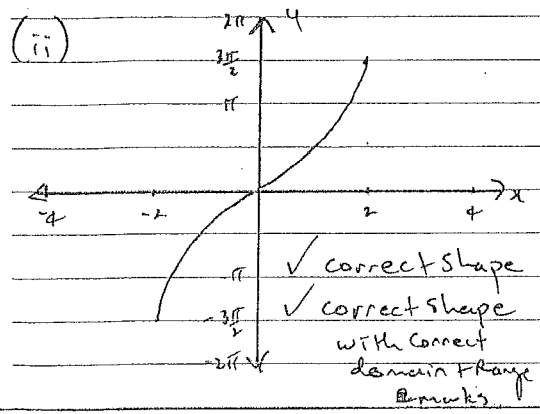 (ii)
2π y
3π/2
π
-4 -2 2 4 x
-π
✓ correct shape
-3π/2
✓ correct shape
with correct
-2π
domain + Range
marks